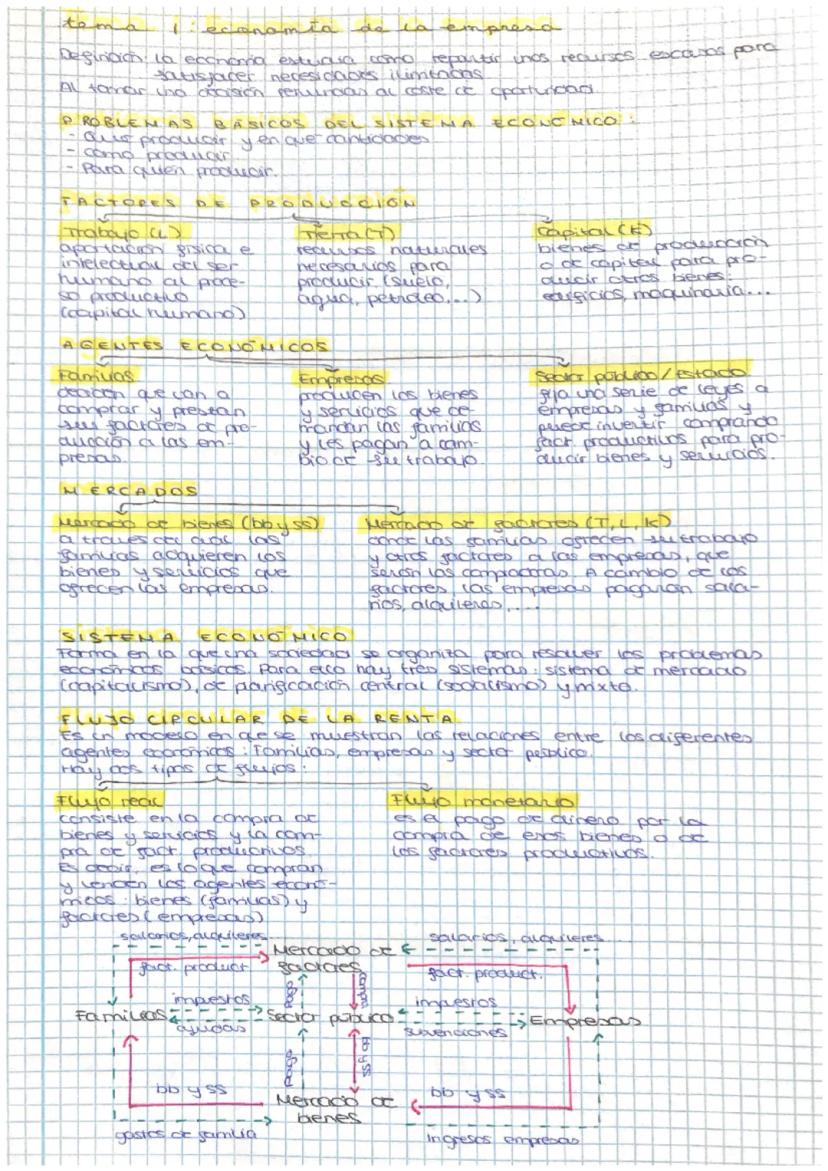 tema 1: economía de la empresa
Definición: la economía estudia cómo repartir unos recursos escasos para
satisfacer necesidades ilimitadas
Al tomar una decisión renunciás al coste de oportunidad.
PROBLEMAS BÁSICOS DEL SISTEMA ECONÓMICO:
- Qué producir y en qué cantidades
- Cómo producir
- Para quién producir.
FACTORES DE PRODUCCIÓN
Trabajo (L)
aportación física e
intelectual del ser
humano al proce-
so productivo
(capital humano)
Tierra (T)
recursos naturales
necesarios para
producir (suelo,
agua, petróleo...)
Capital (K)
bienes de producción
o de capital para pro-
ducir otros bienes:
edificios, maquinaria...
AGENTES ECONÓMICOS
Familias
deciden que van a
comprar y prestan
sus factores de pro-
ducción a las em-
presas.
Empresas
producen los bienes
y servicios que de-
mandan las familias
y les pagan a cam-
bio de su trabajo.
Sector público / estado
fija una serie de leyes a
empresas y familias y
puede invertir comprando
fact. productivos para pro-
ducir bienes y servicios.
MERCADOS
Mercado de bienes (bb y ss)
a través del cual las
familias adquieren los
bienes y servicios que
ofrecen las empresas.
Mercado de factores (T, L, K)
donde las familias ofrecen su trabajo
y otros factores a las empresas, que
serán las compradoras. A cambio de los
factores las empresas pagarán sala-
rios, alquileres.....
SISTEMA ECONÓMICO
Forma en la que una sociedad se organiza para resolver los problemas
económicos básicos. Para ello hay tres sistemas: sistema de mercado
(capitalismo), de planificación central (socialismo) y mixto.
FLUJO CIRCULAR DE LA RENTA
Es un modelo en que se muestran las relaciones entre los diferentes
agentes económicos: Familias, empresas y sector público.
Hay dos tipos de flujos:
Flujo real
consiste en la compra de
bienes y servicios y la com-
pra de fact. productivos.
Es decir, es lo que compran
y venden los agentes econó-
micos: bienes (familias) y
factores (empresas)
Flujo monetario
es el pago de dinero por la
compra de esos bienes o de
los factores productivos.
salarios, alquileres...
salarios, alquileres
Mercado de
factores
fact. product
fact. product.
pago
compra
impuestos
impuestos
Familias
Sector público
Empresas
ayudas
subvenciones
pago
bb y ss
bb y ss
bb y ss
Mercado de
bienes
gastos de familia
ingresos empresas